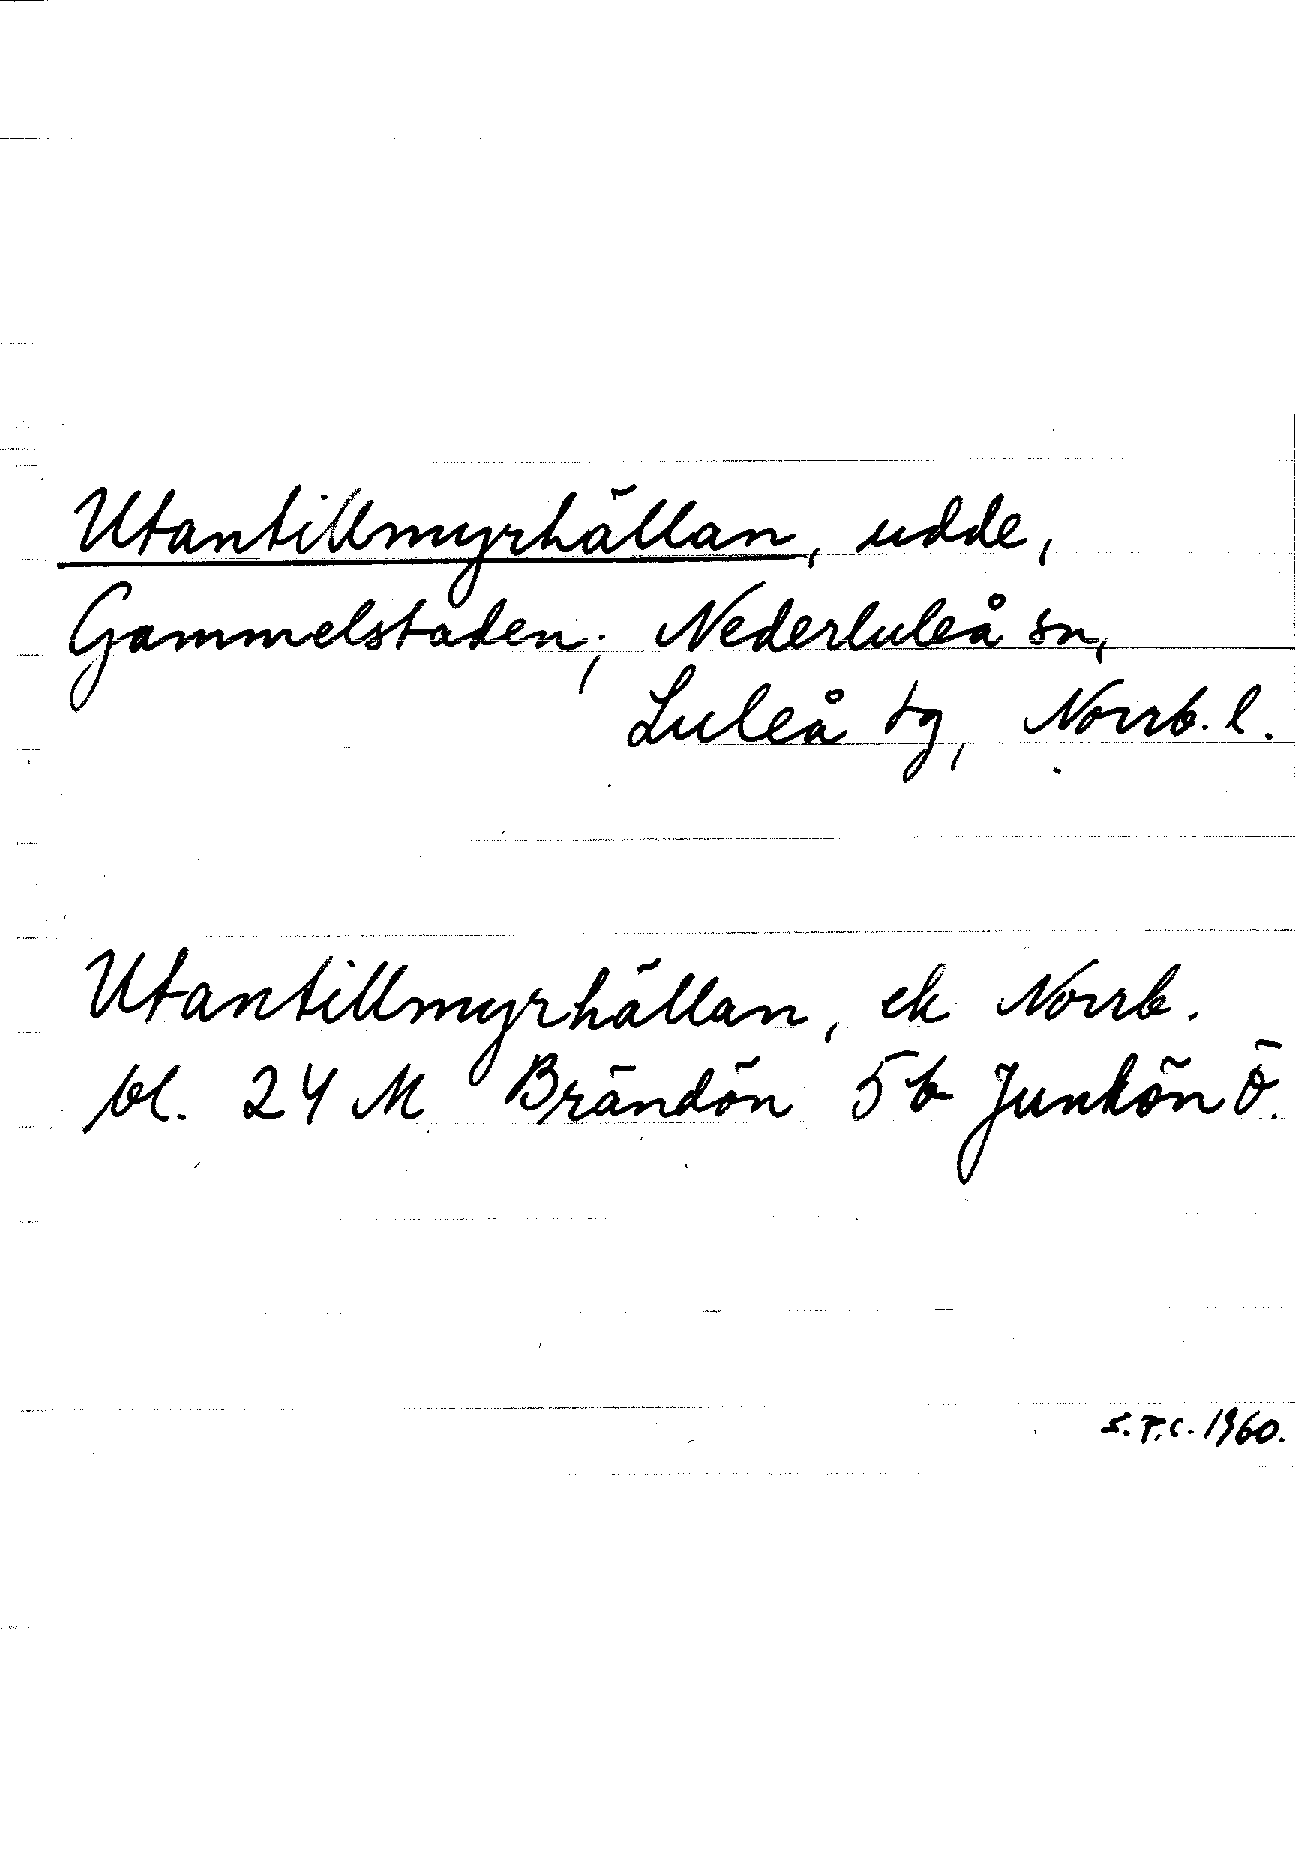 Utantillmyrhällan, udde,
Gammelstaden, Nederluleå sn,
Luleå tg, Norrb. l.
Utantillmyrhällan, ek Norrb.
bl. 24 M Brändön 5b Junkön Ö.
S.T.C. 1960.